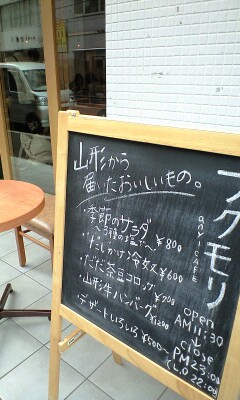 フクモリ
山形から
届いたおいしいもの。
・季節のサラダ
～3種の塩で～ ¥800
・だしかけ冷奴 ¥600
・だだ茶豆コロッケ ¥700
・山形牛ハンバーグ ¥1200
・デザートいろいろ ¥500～
open
AM11:30
close
PM23:00
(L.O 22:00)